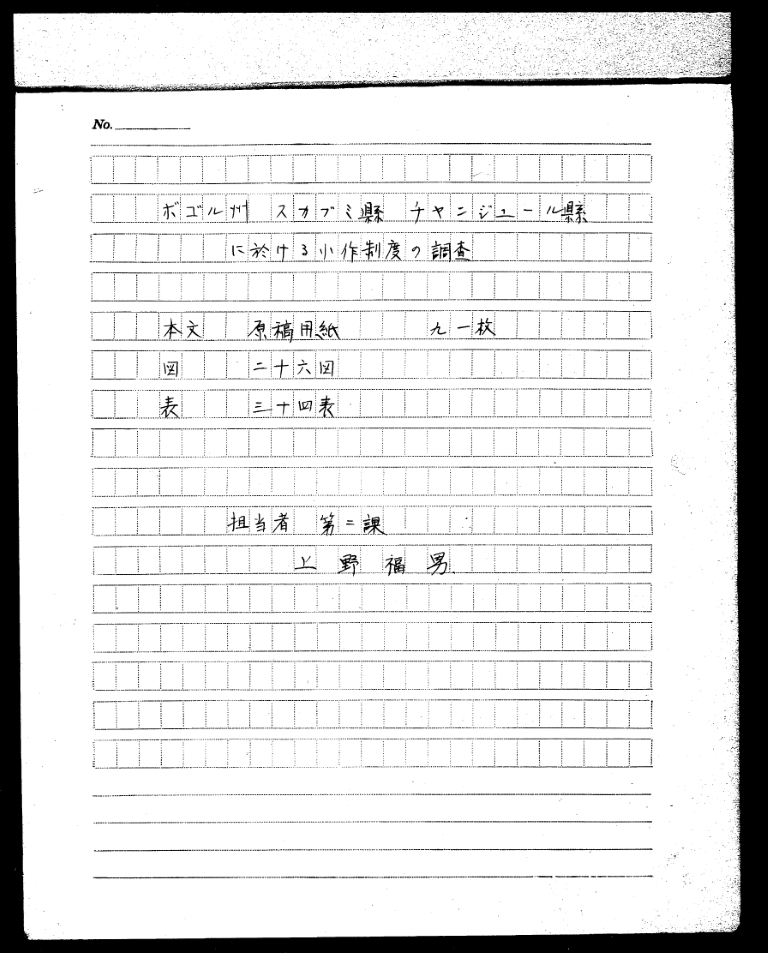 No.
ボゴル州 スカブミ縣 チヤンジュール縣
に於ける小作制度の調査
本文 原稿用紙 九一枚
図 二十六図
表 三十四表
担当者 第二課
上野福男